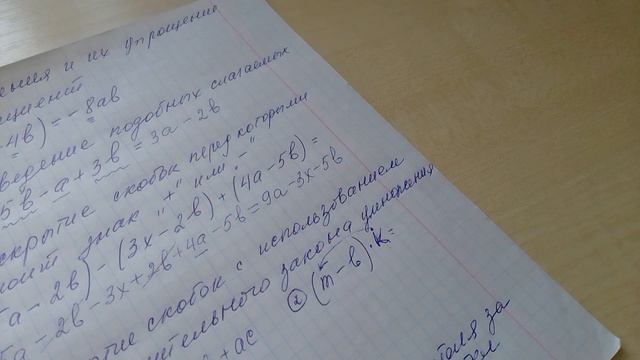 ения и их упрощение
ициент
4в) = -8ав
ведение подобных слагаемых
5в - а + 3в = 3а - 2в
скрытие скобок перед которыми
оит знак "+" или "-"
а - 2в) - (3х - 2в) + (4а - 5в) =
а - 2в - 3х + 2в + 4а - 5в = 9а - 3х - 5в
тие скобок с использованием
ительного закона умножения
+ ас ② (m - в) · к =
оля за